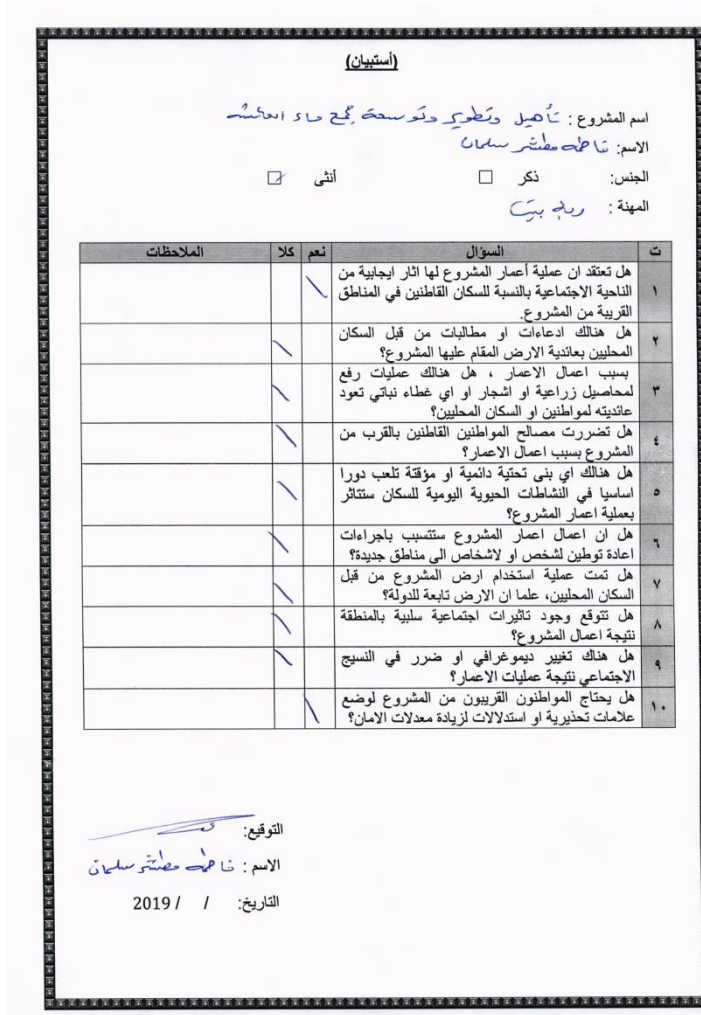 (أستبيان)
اسم المشروع : تأهيل وتطوير وتوسعة مجمع ماء
الاسم: فاطمه مطشر سلمان
الجنس: ذكر ☐ أنثى ☑
المهنة : ربه بيت
ت السؤال نعم كلا الملاحظات
١ هل تعتقد ان عملية أعمار المشروع لها اثار ايجابية من
الناحية الاجتماعية بالنسبة للسكان القاطنين في المناطق
القريبة من المشروع.
٢ هل هنالك ادعاءات او مطالبات من قبل السكان
المحليين بعائدية الارض المقام عليها المشروع؟
٣ بسبب اعمال الاعمار ، هل هنالك عمليات رفع
لمحاصيل زراعية او اشجار او اي غطاء نباتي تعود
عائديته لمواطنين او السكان المحليين؟
٤ هل تضررت مصالح المواطنين القاطنين بالقرب من
المشروع بسبب اعمال الاعمار؟
٥ هل هنالك اي بنى تحتية دائمية او مؤقتة تلعب دورا
اساسيا في النشاطات الحيوية اليومية للسكان ستتاثر
بعملية اعمار المشروع؟
٦ هل ان اعمال اعمار المشروع ستتسبب باجراءات
اعادة توطين لشخص او لاشخاص الى مناطق جديدة؟
٧ هل تمت عملية استخدام ارض المشروع من قبل
السكان المحليين، علما ان الارض تابعة للدولة؟
٨ هل تتوقع وجود تاثيرات اجتماعية سلبية بالمنطقة
نتيجة اعمال المشروع؟
٩ هل هناك تغيير ديموغرافي او ضرر في النسيج
الاجتماعي نتيجة عمليات الاعمار؟
١٠ هل يحتاج المواطنون القريبون من المشروع لوضع
علامات تحذيرية او استدلالات لزيادة معدلات الامان؟
التوقيع:
الاسم : فاطمه مطشر سلمان
التاريخ: / / 2019